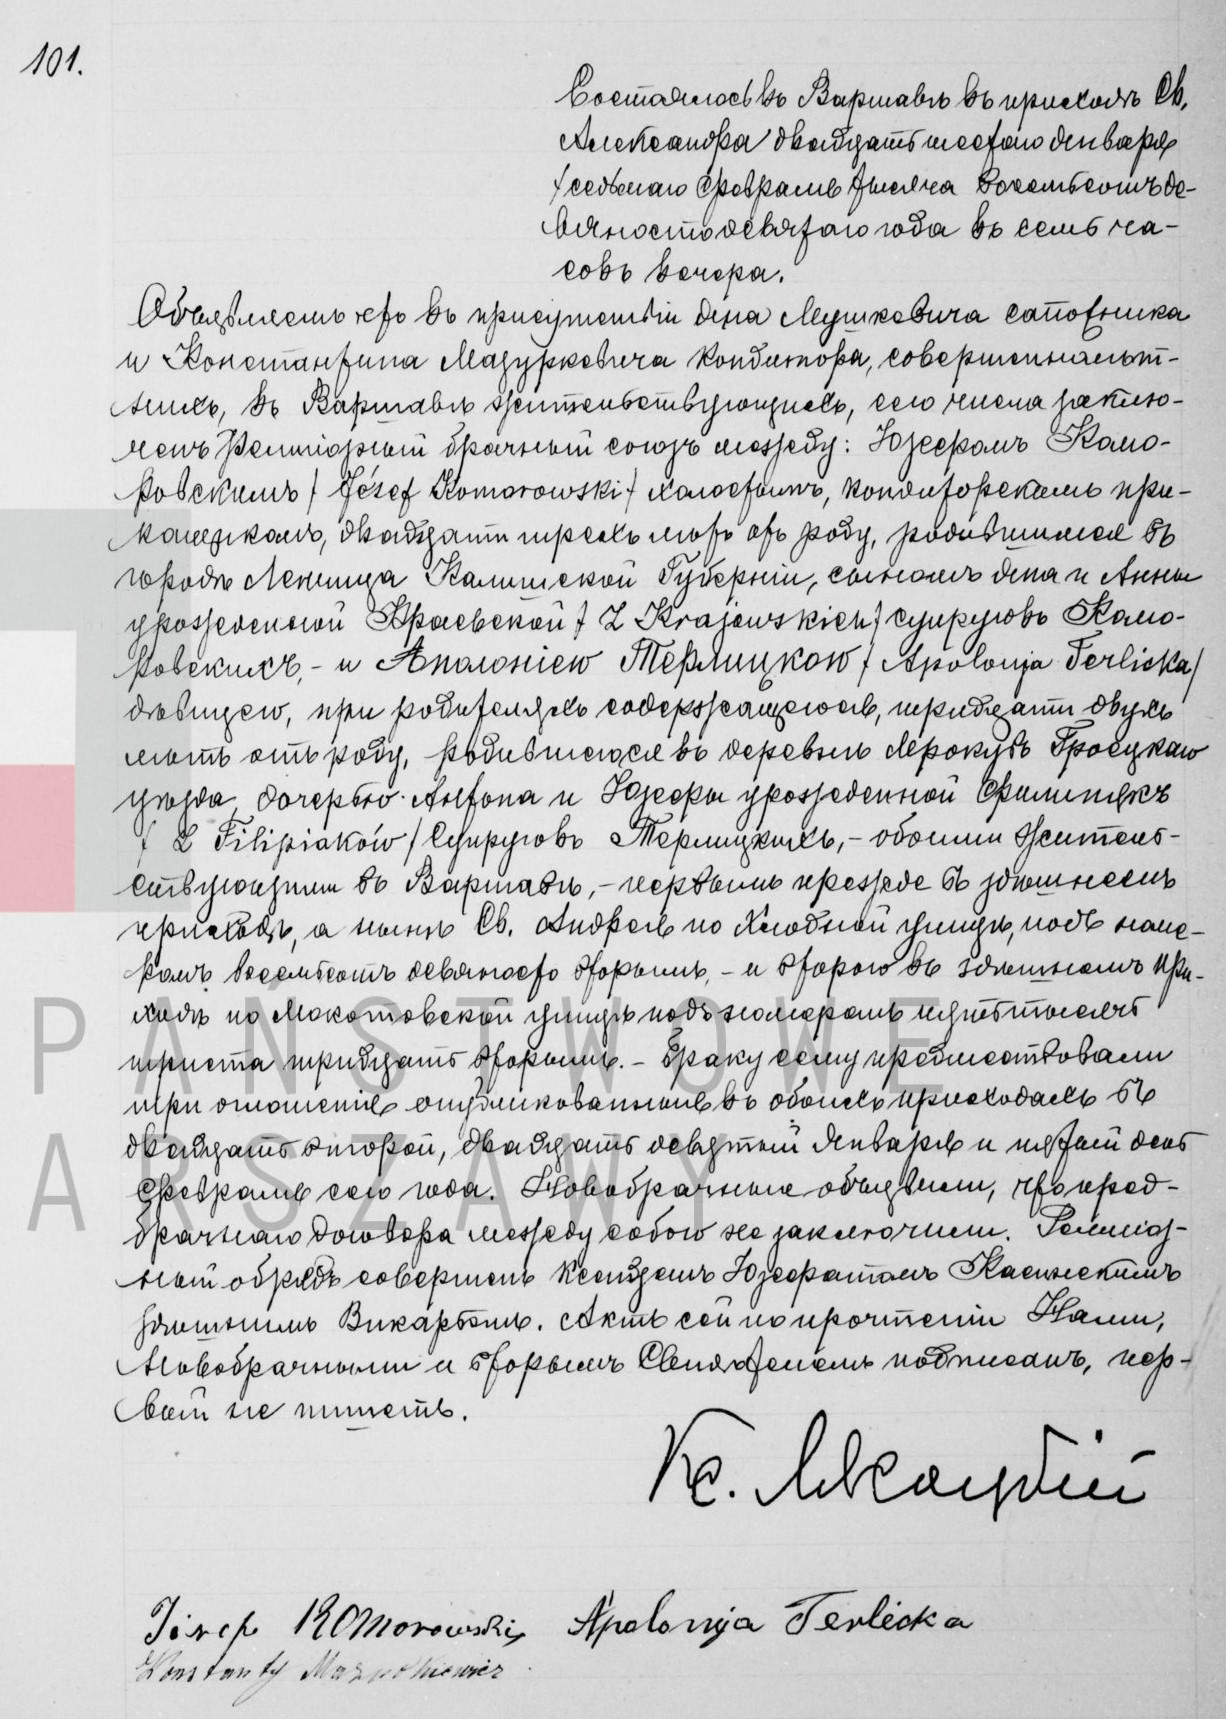 101.
Состоялось въ Варшавѣ въ приходѣ Св.
Александра двадцать шестого Января
/седьмаго Февраля тысяча восемьсотъ де-
вяностодевятаго года въ семь ча-
совъ вечера.
Объявляемъ что въ присутствіи Яна Мушкевича сапожника
и Константина Мазуркевича кондитора, совершеннолѣт-
нихъ, въ Варшавѣ жительствующихъ, сего числа заклю-
ченъ религіозный брачный союзъ между: Юзефомъ Комо-
ровскимъ / Józef Komorowski / холостымъ, кондиторскимъ при-
кащикомъ, двадцати трехъ лѣтъ отъ роду, родившимся въ
городѣ Ленчица Калишской Губерніи, сыномъ Яна и Анны
урожденной Краевской / Z Krajewskich / супруговъ Комо-
ровскихъ, - и Аполоніею Терлицкою / Apolonja Terlicka /
дѣвицею, при родителяхъ содержащеюся, тридцати двухъ
лѣтъ отъ роду, родившеюся въ деревнѣ Гроецкаго
уѣзда, дочерью Антона и Юзефы урожденной Филипякъ
/ Z Filipiaków / супруговъ Терлицкихъ, - обоими житель-
ствующими въ Варшавѣ, - первымъ прежде въ здѣшнемъ
приходѣ, а нынѣ Св. Андрея по Хлодной улицѣ, подъ номе-
ромъ восемьсотъ девяносто вторымъ, - и второю въ здѣшнемъ при-
ходѣ по Мокотовской улицѣ подъ номеромъ пять тысячъ
триста тридцать вторымъ. - Браку сему предшествовали
три оглашенія опубликованныя въ обоихъ приходахъ въ
двадцать второй, двадцать девятый Января и пятый день
Февраля сего года. Новобрачные объявили, что пред-
брачнаго договора между собою не заключили. Религіоз-
ный обрядъ совершенъ Ксендзомъ Юзефатомъ
здѣшнимъ Викаріемъ. Актъ сей по прочтеніи Нами,
Новобрачными и вторымъ Свидѣтелемъ подписанъ, пер-
вый не пишетъ.
Кс.
Józef Komorowski Apolonija Terlicka
Konstanty Mazurkiewicz
PAŃSTWOWE
ARSZAWY